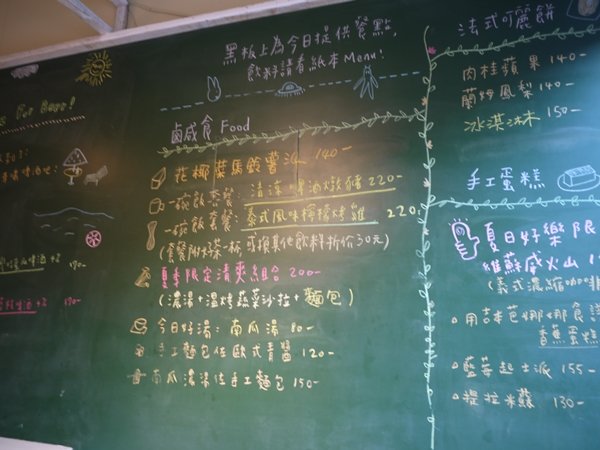 黑板上為今日提供餐點,
飲料請看紙本Menu!
鹵咸食 Food
花椰菜馬鈴薯 140-
一碗飯套餐: 啤酒燉豬 220-
一碗飯套餐: 義式風味檸檬烤雞 220-
(套餐附好茶一杯 或換其他飲料折價30元)
夏季限定清爽組合 200-
(濃湯+溫烤蔬菜沙拉+麵包)
今日好湯: 南瓜湯 80-
手工麵包佐歐式青醬 120-
南瓜濃湯佐手工麵包 150-
法式可麗餅
肉桂蘋果 140-
蘭姆鳳梨 140-
冰淇淋 150-
手工蛋糕
夏日好樂限
維蘇威火山
(義式濃縮咖啡
用吉米芭娜娜食譜
香蕉蛋糕
藍莓起士派 155-
提拉米蘇 130-
For Beer!
190-
190-